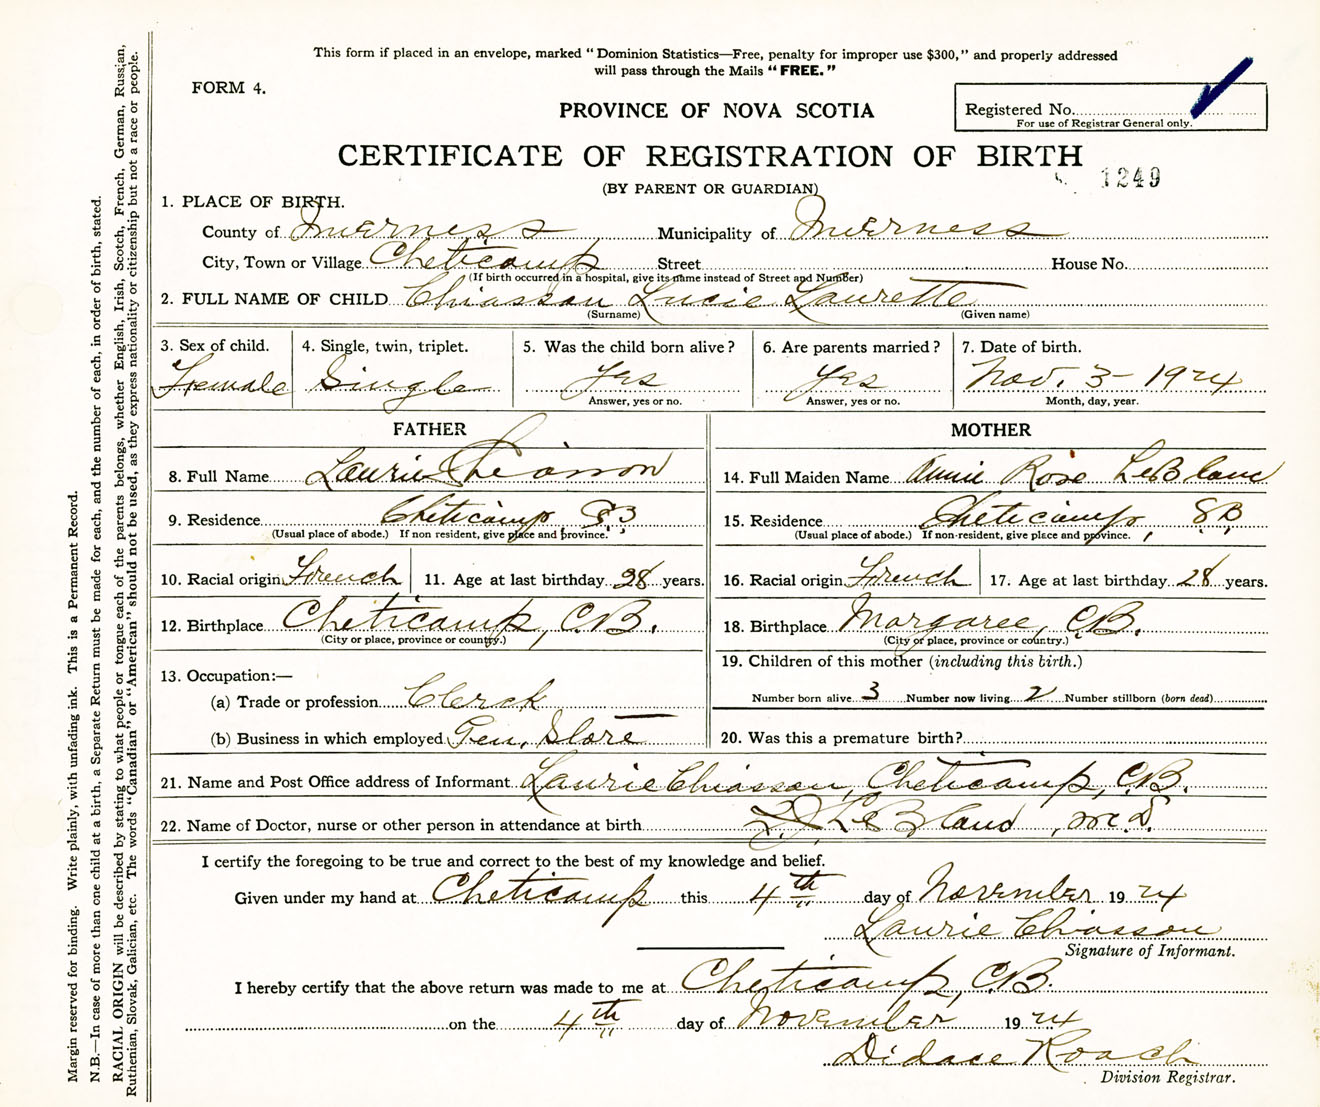 This form if placed in an envelope, marked "Dominion Statistics—Free, penalty for improper use $300," and properly addressed
will pass through the Mails "FREE."
FORM 4.
PROVINCE OF NOVA SCOTIA
Registered No.
For use of Registrar General only.
CERTIFICATE OF REGISTRATION OF BIRTH
1249
(BY PARENT OR GUARDIAN)
1. PLACE OF BIRTH.
County of Inverness Municipality of Inverness
City, Town or Village Cheticamp Street House No.
(If birth occurred in a hospital, give its name instead of Street and Number)
2. FULL NAME OF CHILD Chiasson Lucie Laurette
(Surname) (Given name)
3. Sex of child. 4. Single, twin, triplet. 5. Was the child born alive? 6. Are parents married? 7. Date of birth.
Female Single Yes Yes Nov. 3 - 1924
Answer, yes or no. Answer, yes or no. Month, day, year.
FATHER MOTHER
8. Full Name Laurie Chiasson 14. Full Maiden Name Annie Rose LeBlanc
9. Residence Cheticamp, 15. Residence Cheticamp,
(Usual place of abode.) If non resident, give place and province. (Usual place of abode.) If non-resident, give place and province.
10. Racial origin French 11. Age at last birthday 28 years. 16. Racial origin French 17. Age at last birthday 28 years.
12. Birthplace Cheticamp, C.B. 18. Birthplace Margaree, C.B.
(City or place, province or country.) (City or place, province or country.)
13. Occupation:— 19. Children of this mother (including this birth.)
(a) Trade or profession Clerck Number born alive 3 Number now living 2 Number stillborn (born dead)
(b) Business in which employed Gen. Store 20. Was this a premature birth?
21. Name and Post Office address of Informant Laurie Chiasson, Cheticamp, C.B.
22. Name of Doctor, nurse or other person in attendance at birth LeBlanc, M.D.
I certify the foregoing to be true and correct to the best of my knowledge and belief.
Given under my hand at Cheticamp this 4th day of November 1924
Laurie Chiasson
Signature of Informant.
I hereby certify that the above return was made to me at Cheticamp, C.B.
on the 4th day of November 1924
Didace Roach
Division Registrar.
Margin reserved for binding. Write plainly, with unfading ink. This is a Permanent Record.
N.B.—In case of more than one child at a birth, a Separate Return must be made for each, and the number of each, in order of birth, stated.
RACIAL ORIGIN will be described by stating to what people or tongue each of the parents belongs, whether English, Irish, Scotch, French, German, Russian,
Ruthenian, Slovak, Galician, etc. The words "Canadian" or "American" should not be used, as they express nationality or citizenship but not a race or people.